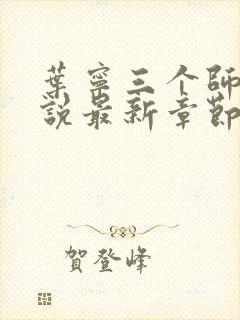 葉寧三个師
說最新章節
賀登峰